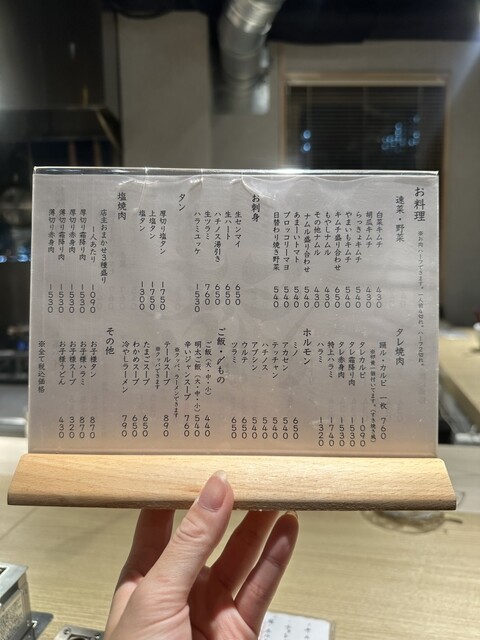 お料理
※お肉ハーフできます。
速菜・野菜
白菜キムチ 430
胡瓜キムチ 430
らっきょキムチ 540
やまいもキムチ 540
キムチ盛り合わせ 650
もやしナムル 430
その他ナムル 430
ナムル盛り合わせ 540
あまーいトマト 540
ブロッコリーマヨ 540
日替わり焼き野菜 540
お刺身
生センマイ 650
生ハート 650
ハチノス湯引き 650
生ツラミ 760
ハラミユッケ 1530
タン
厚切り塩タン 1750
上塩タン 1750
塩タン 1300
塩焼肉
店主おまかせ3種盛り
一人あたり 1090
厚切り霜降り肉 1530
厚切り赤身肉 1530
薄切り霜降り肉 1530
薄切り赤身肉 1530
タレ焼肉
踊ル・カルビ 一枚 760
タレカルビ 1090
タレ霜降り肉 1530
タレ赤身肉 1530
特上ハラミ 1740
ハラミ 1320
ホルモン
アカセン 540
テッチャン 540
ハチノス 540
アブシン 540
ウルテ 650
ツラミ 650
ご飯・〆もの
ご飯(大・中・小) 440
明太ご飯(大・中・小) 540
辛いジャンスープ 760
テールスープ 890
たまごスープ 650
わかめスープ 650
冷やしラーメン 790
その他
お子様タン 870
お子様ハラミ 870
お子様スープ 320
お子様うどん 430
※全て税込価格